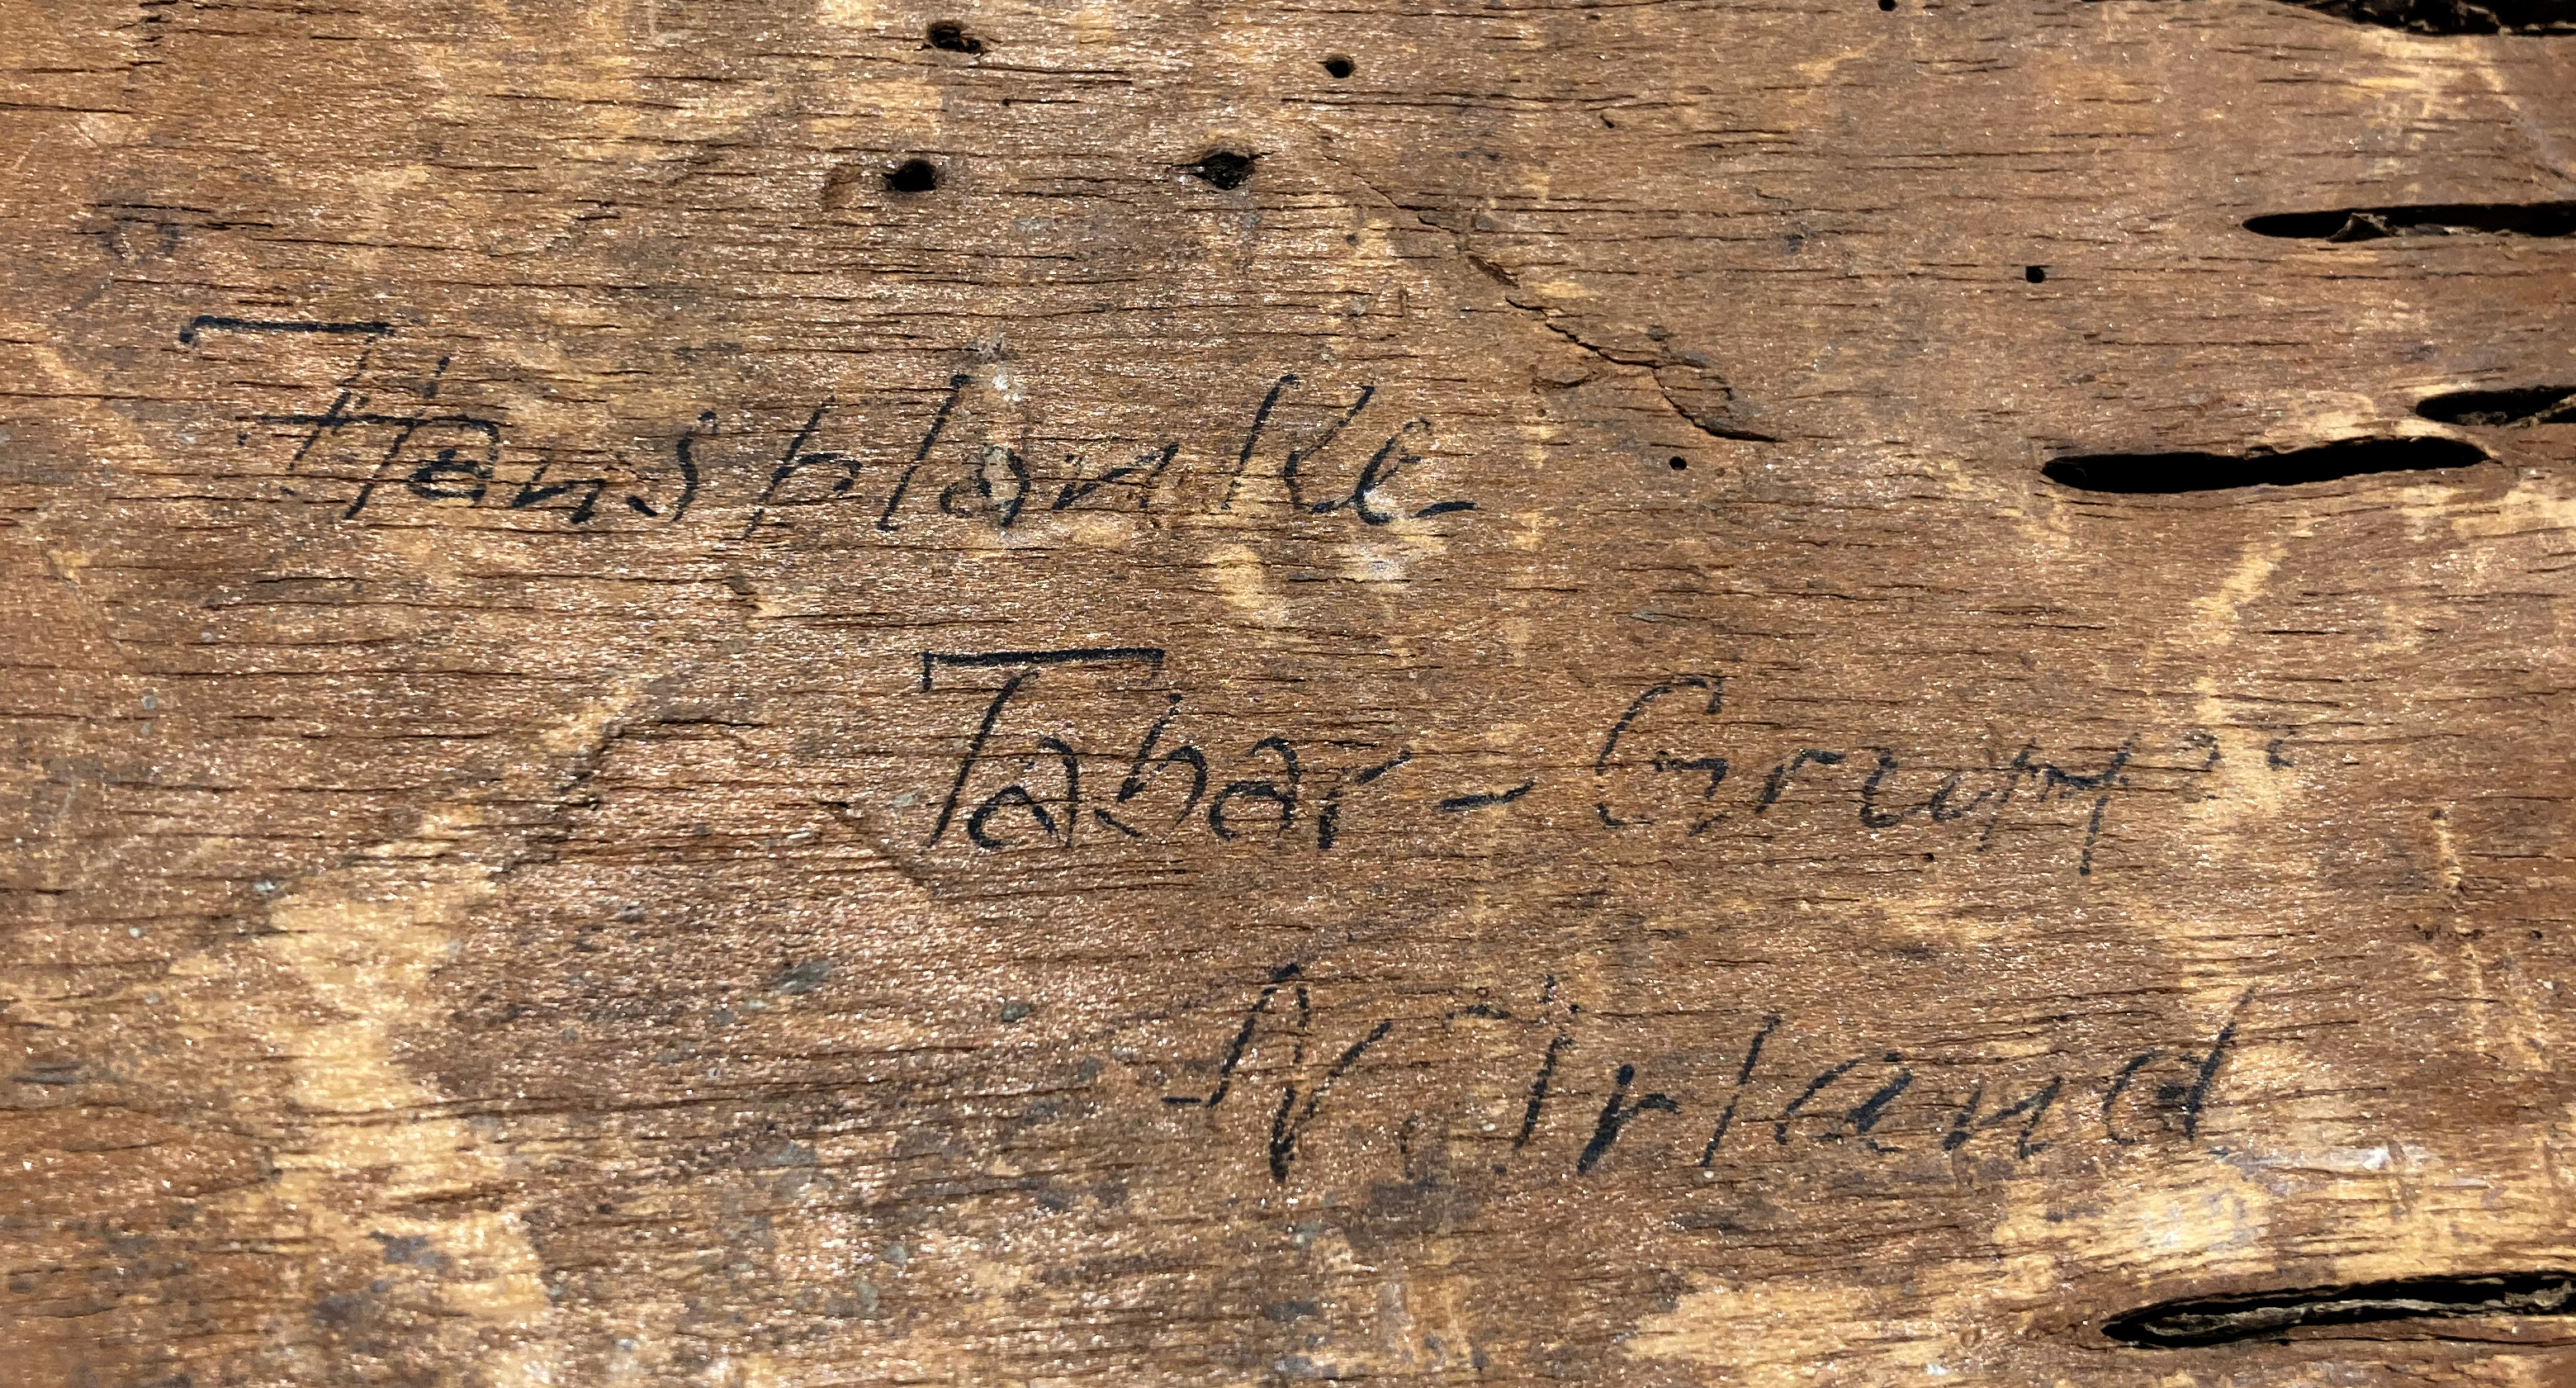 Hausplanke
Tabar - Gruppe
N. Irland